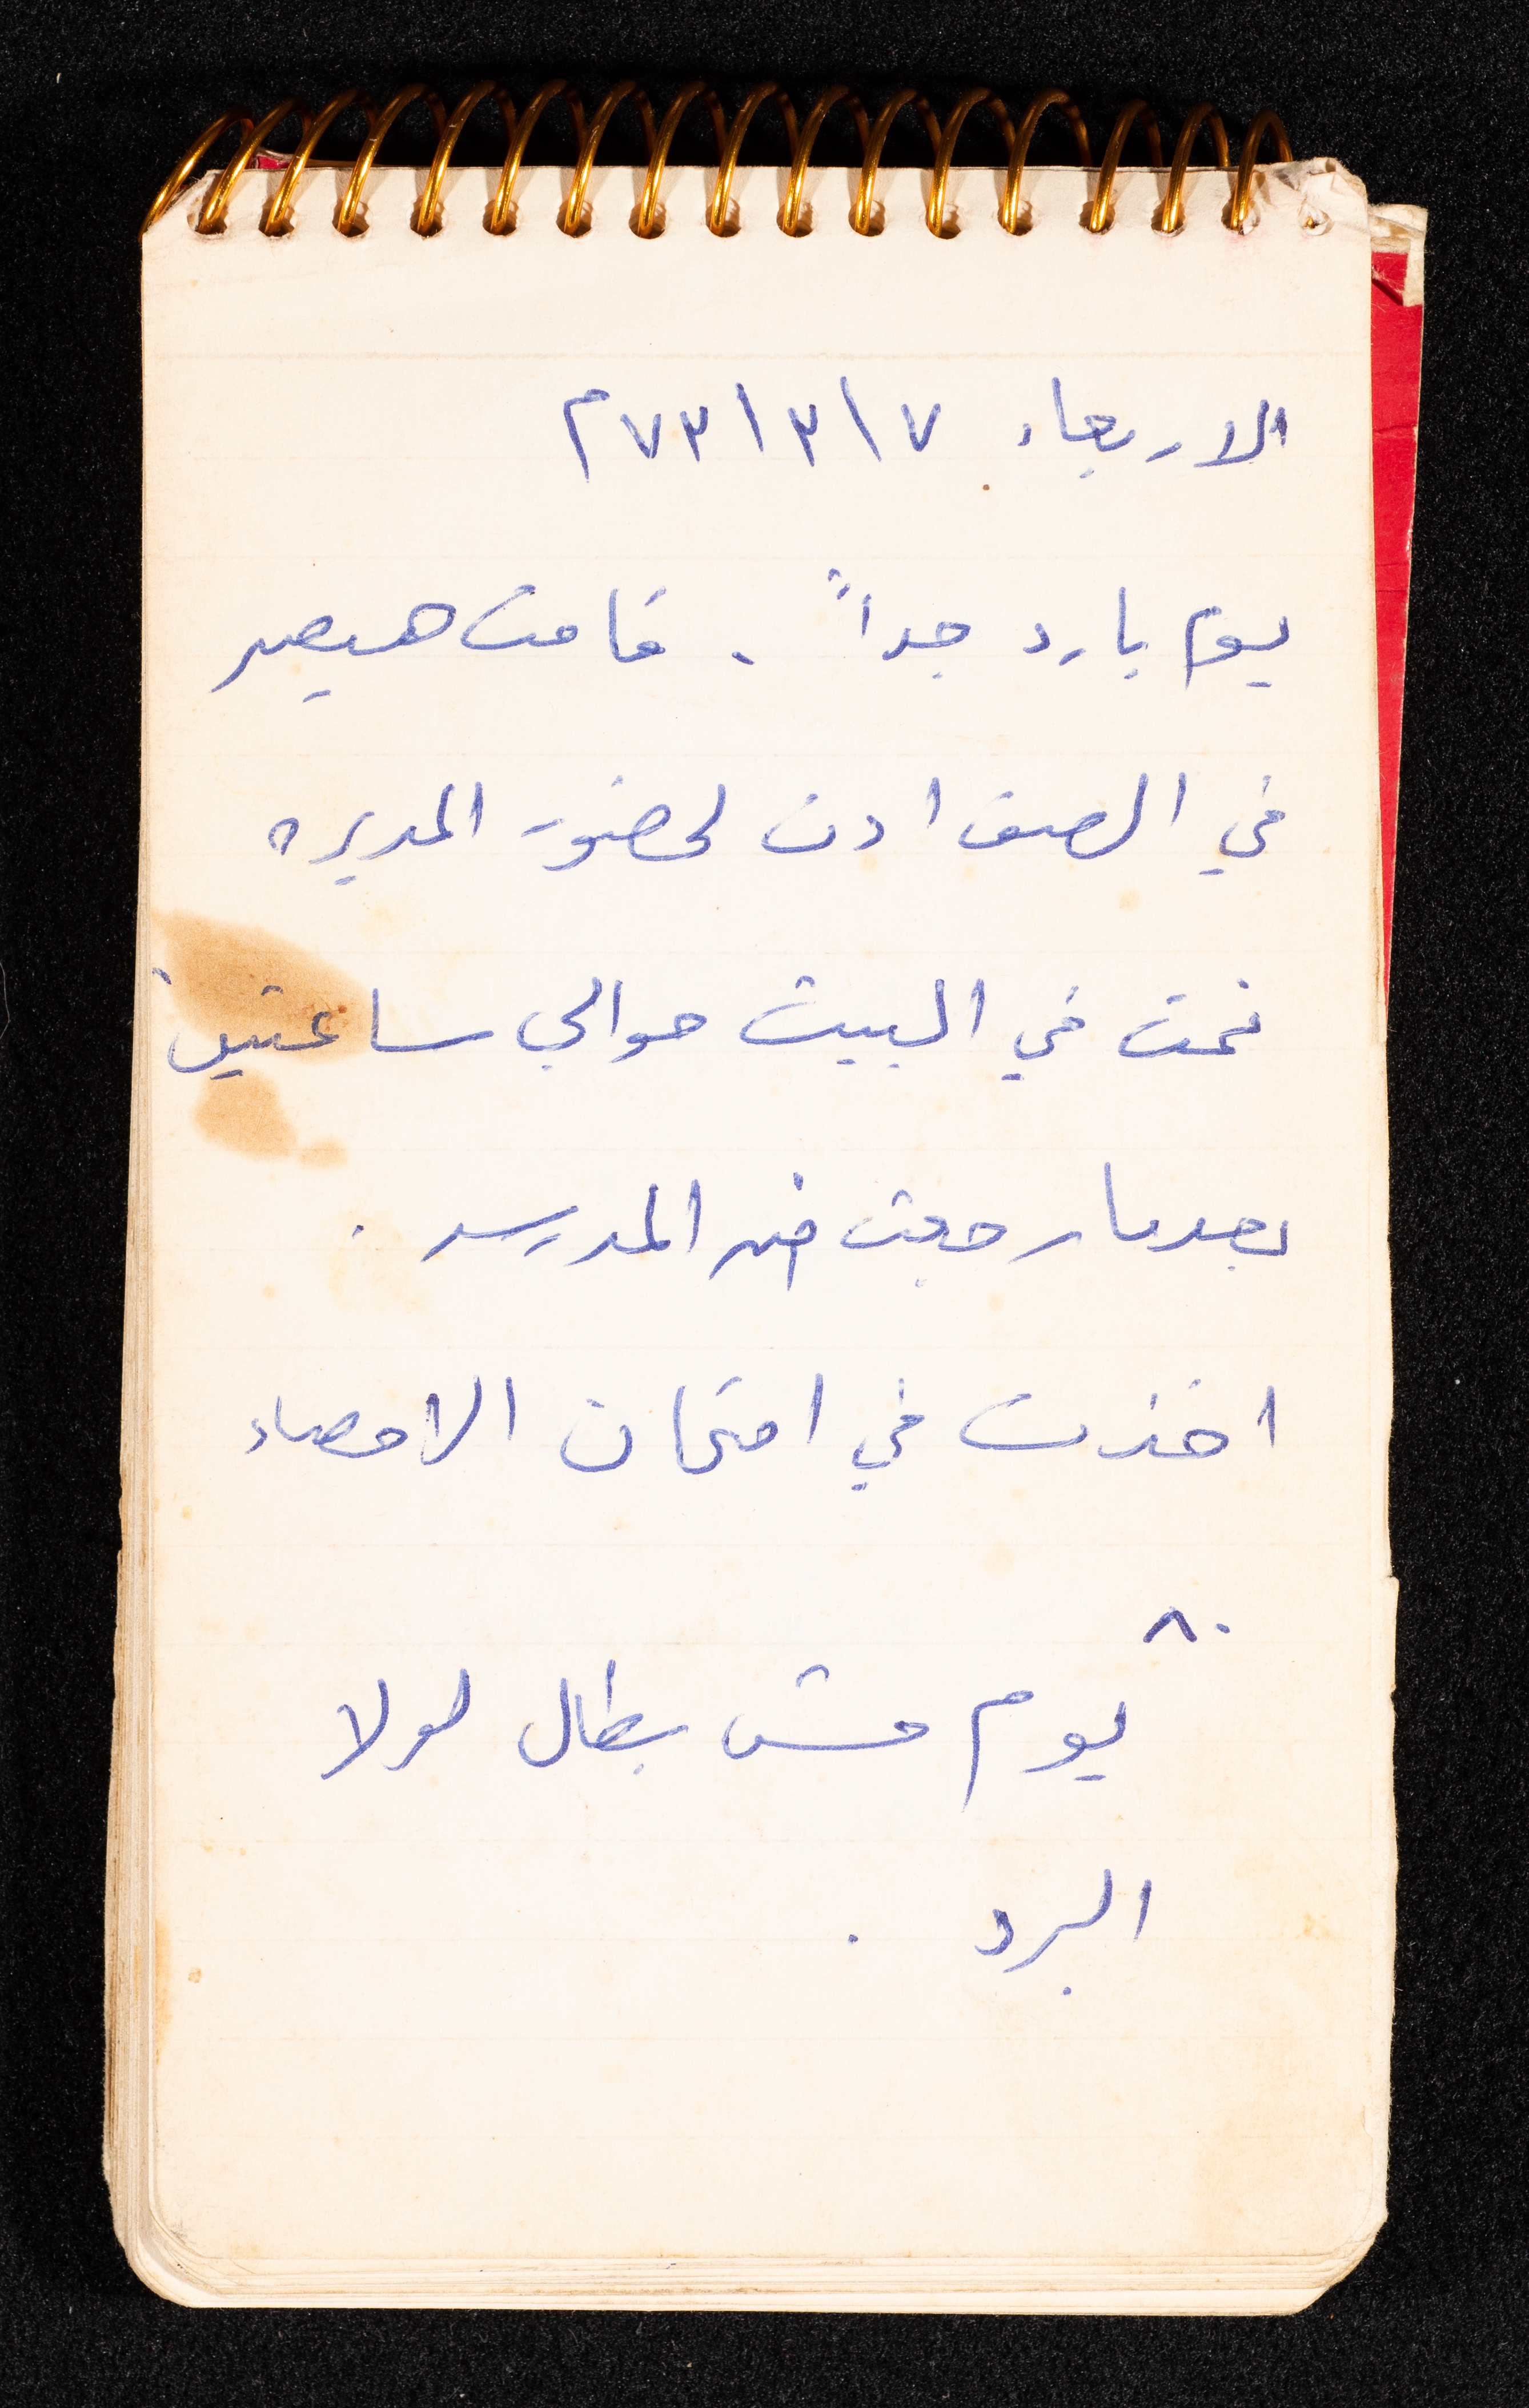 الاربعاء ٧ \ ٣ \ ٧٣ م
يوم بارد جداً . قامت هيصه
في الصف ادت لحضور المديره
نمت في البيت حوالي ساعتين
بعدما رجعت من المدرسه .
اخذت في امتحان الاحصاء
٨٠
يوم مش بطال لولا
البرد .